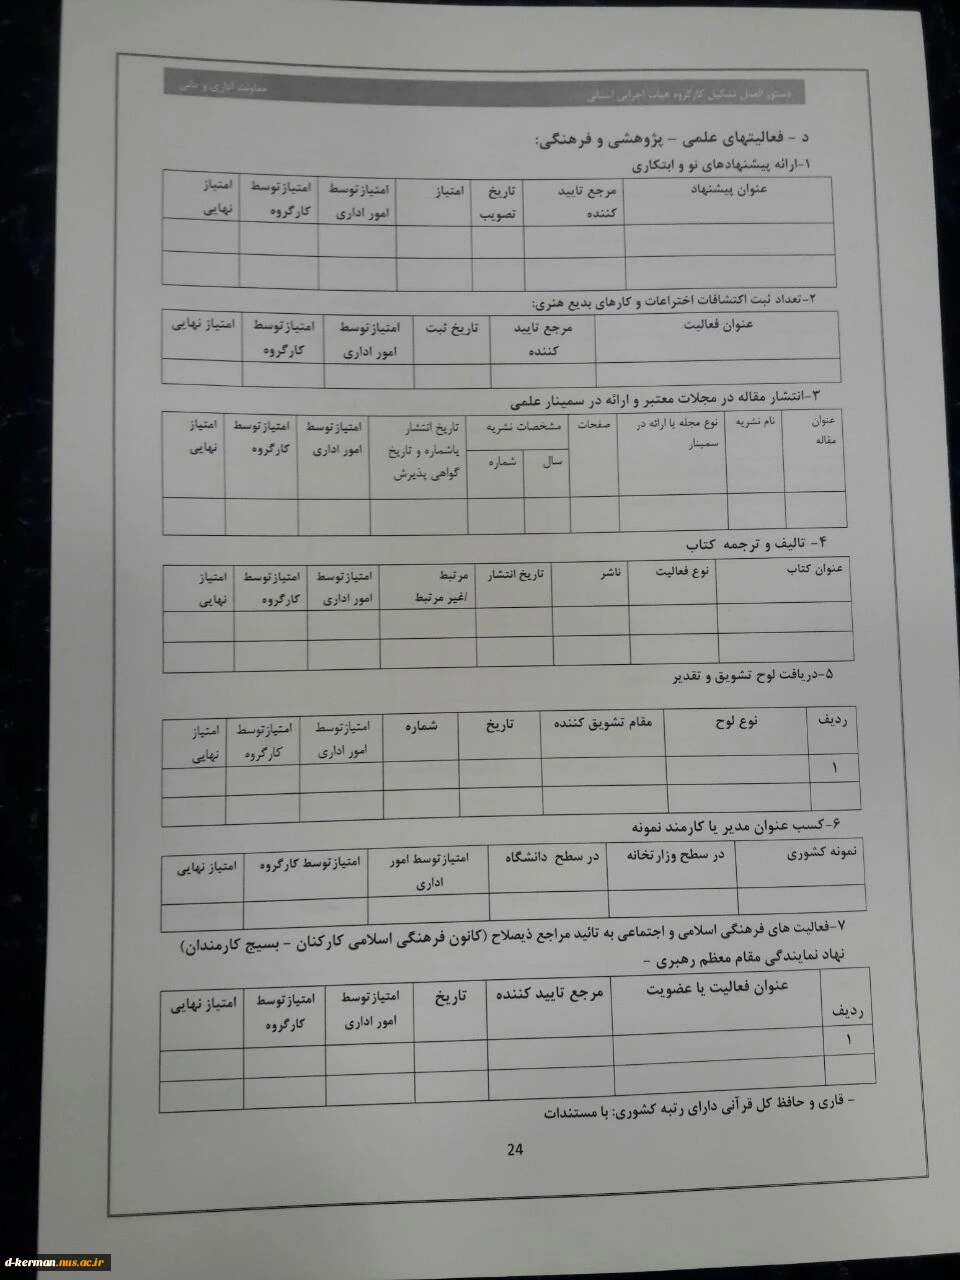 دستور العمل تشکیل کارگروه هیات اجرایی استانی ... معاونت اداری و مالی
د - فعالیتهای علمی - پژوهشی و فرهنگی:
۱-ارائه پیشنهادهای نو و ابتکاری
عنوان پیشنهاد مرجع تایید کننده تاریخ تصویب امتیاز امتیاز توسط امور اداری امتیاز توسط کارگروه امتیاز نهایی
۲-تعداد ثبت اکتشافات اختراعات و کارهای بدیع هنری:
عنوان فعالیت مرجع تایید کننده تاریخ ثبت امتیاز توسط امور اداری امتیاز توسط کارگروه امتیاز نهایی
۳-انتشار مقاله در مجلات معتبر و ارائه در سمینار علمی
عنوان مقاله نام نشریه نوع مجله یا ارائه در سمینار صفحات مشخصات نشریه تاریخ انتشار یاشماره و تاریخ گواهی پذیرش امتیاز توسط امور اداری امتیاز توسط کارگروه امتیاز نهایی
سال شماره
۴- تالیف و ترجمه کتاب
عنوان کتاب نوع فعالیت ناشر تاریخ انتشار مرتبط /غیر مرتبط امتیاز توسط امور اداری امتیاز توسط کارگروه امتیاز نهایی
۵-دریافت لوح تشویق و تقدیر
ردیف نوع لوح مقام تشویق کننده تاریخ شماره امتیاز توسط امور اداری امتیاز توسط کارگروه امتیاز نهایی
۱
۶-کسب عنوان مدیر یا کارمند نمونه
نمونه کشوری در سطح وزارتخانه در سطح دانشگاه امتیاز توسط امور اداری امتیاز توسط کارگروه امتیاز نهایی
۷-فعالیت های فرهنگی اسلامی و اجتماعی به تائید مراجع ذیصلاح (کانون فرهنگی اسلامی کارکنان - بسیج کارمندان)
نهاد نمایندگی مقام معظم رهبری -
ردیف عنوان فعالیت یا عضویت مرجع تایید کننده تاریخ امتیاز توسط امور اداری امتیاز توسط کارگروه امتیاز نهایی
۱
- قاری و حافظ کل قرآنی دارای رتبه کشوری: با مستندات
24
d-kerman.nus.ac.ir